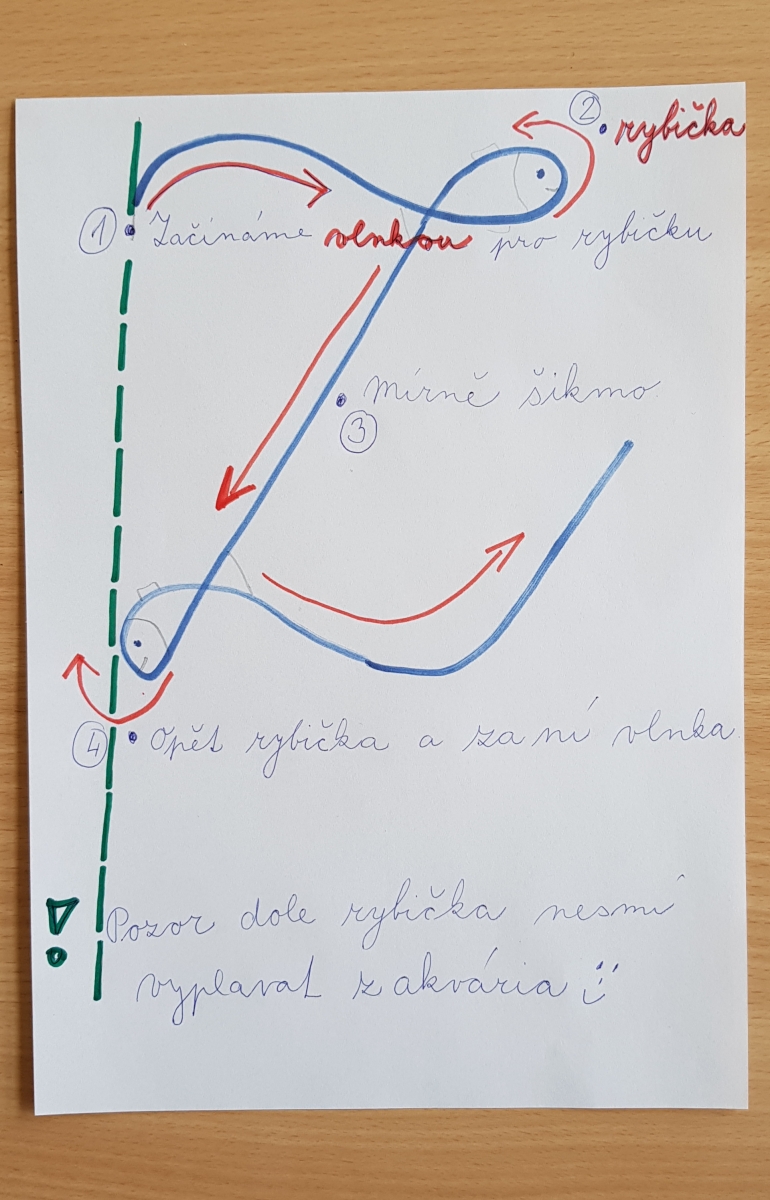 ② • rybička
① • Začínáme vlnkou pro rybičku
• Mírně šikmo
③
④ • Opět rybička a za ní vlnka
! Pozor dole rybička nesmí
vyplavat z akvária